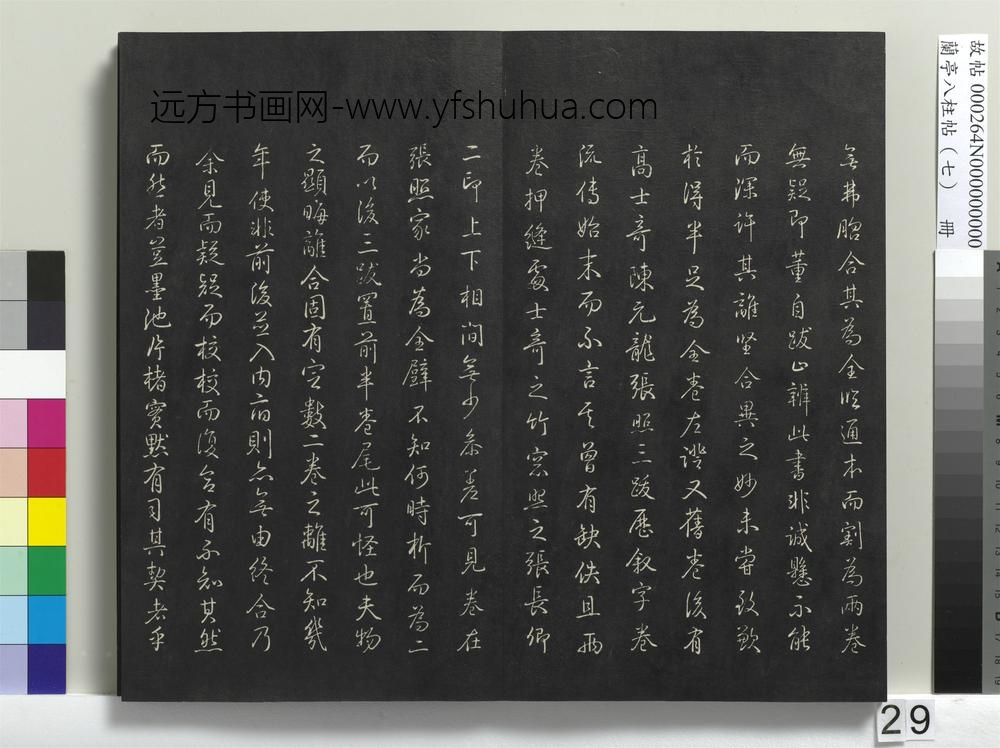 远方书画网-www.yfshuhua.com
無弗脗合其為全帧通本而割為兩卷
無疑即董自跋亦辨此書非诚懸不能
而深许其離堅合異之妙未嘗致歎
於得半足為全卷左證又舊卷後有
高士奇陳元龍張照三跋歷叙字卷
流傳始末而不言其曾有缺佚且兩
卷押縫處士奇之竹窓照之張長卿
二印上下相间無少參差可見卷在
張照家尚為全璧不知何時析而為二
而以後三跋置前半卷尾此可怪也夫物
之顯晦離合固有定數二卷之離不知幾
年使非前後並入内府則亦無由终合乃
余見而疑疑而校校而復合有不知其然
而然者豈墨池片楮實默有司其契者乎
故帖 000264N000000000
蘭亭八柱帖（七） 冊
29